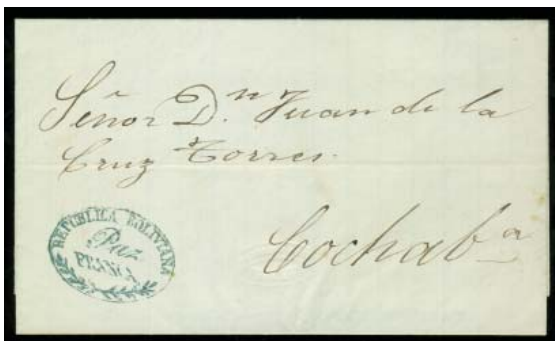 Señor Dⁿ. Juan de la
Cruz Torres.
Cochabª
REPUBLICA BOLIVIANA
Paz
FRANCA